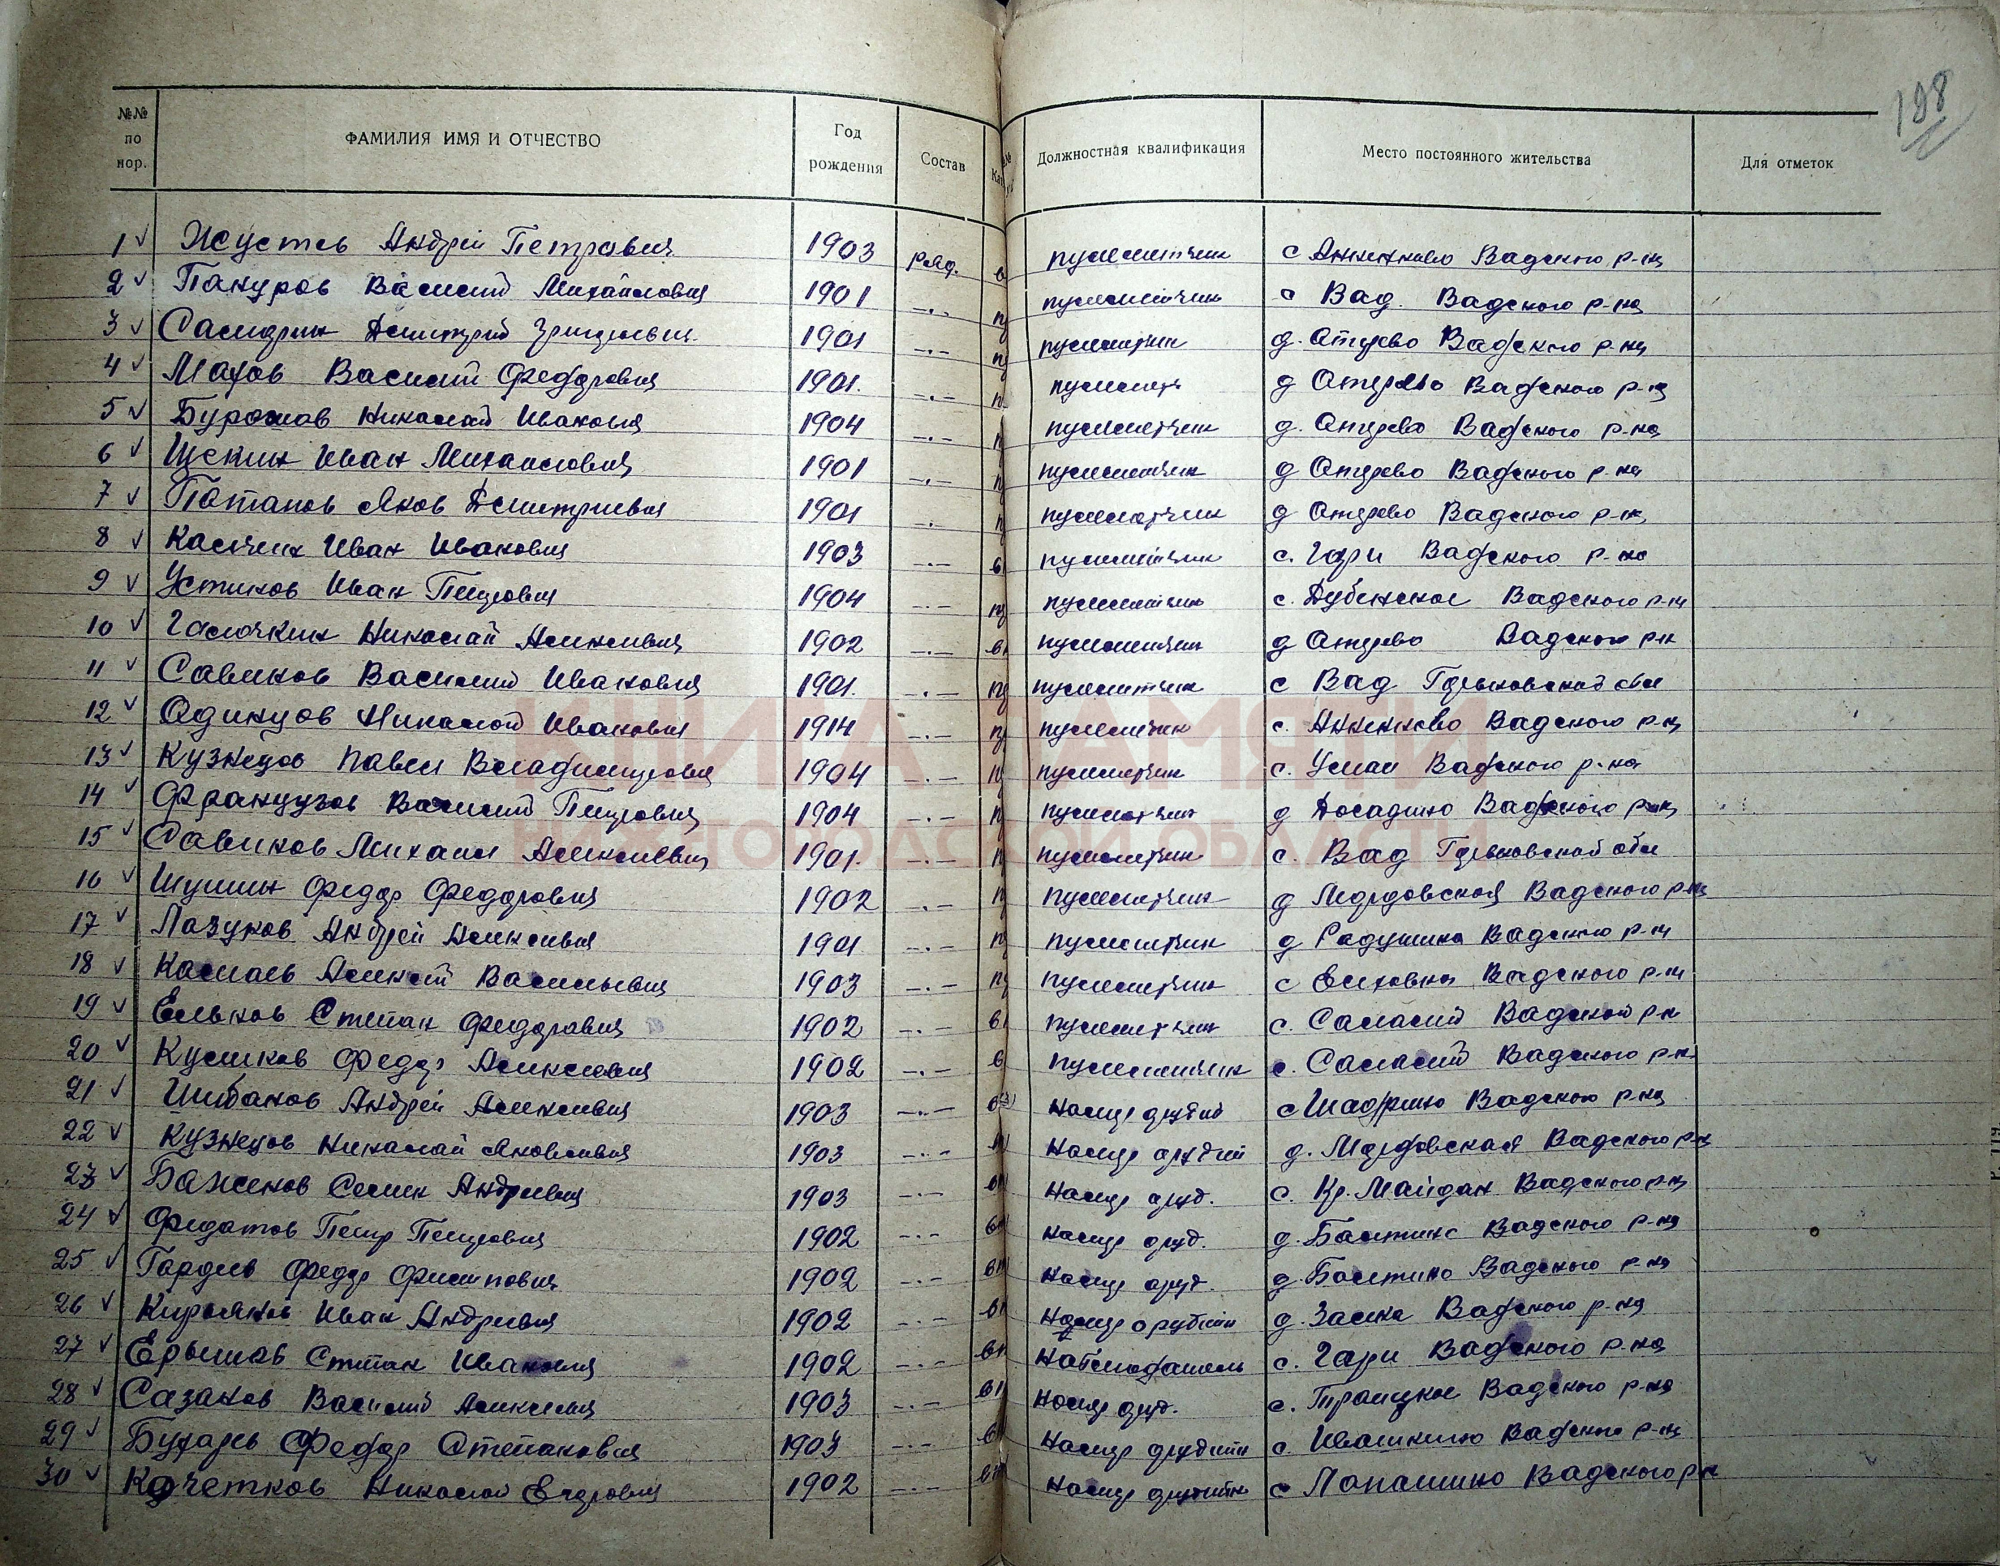 198
№№ по нор.
ФАМИЛИЯ ИМЯ И ОТЧЕСТВО
Год рождения
Состав
Должностная квалификация
Место постоянного жительства
Для отметок
1 Андрей Петрович 1903 ряд. пулеметчик с Анненково Вадского р-на
2 Василий Михайлович 1901 -.- пулеметчик с Вад. Вадского р-на
3 Самарин Дмитрий Григорьевич 1901 -.- пулеметчик д. Отурево Вадского р-на
4 Махов Василий Федорович 1901. -.- пулемет д Вадского р-на
5 Николай Иванович 1904 -.- пулеметчик д. Вадского р-на
6 Щекин Иван Михайлович 1901 -.- пулеметчик д Вадского р-на
7 Потапов Яков Дмитриевич 1901 -.- пулеметчик д Вадского р-на
8 Иван Иванович 1903 -.- пулеметчик с. Вадского р-на
9 Устинов Иван Петрович 1904 -.- пулеметчик с. Дубенское Вадского р-на
10 Галочкин Николай Алексеевич 1902 -.- пулеметчик д Вадского р-н
11 Савинов Василий Иванович 1901. -.- пулеметчик с Вад Горьковской обл
12 Одинцов Николай Иванович 1914 -.- пулеметчик с. Анненково Вадского р-на
13 Кузнецов Павел Владимирович 1904 -.- пулеметчик с. Вадского р-на
14 Французов Василий Петрович 1904 -.- пулеметчик д Досадино Вадского р-на
15 Савинов Михаил Алексеевич 1901. -.- пулеметчик с. Вад Горьковской обл
16 Федор Федорович 1902 -.- пулеметчик д Мордовская Вадского р-на
17 Лазуков Андрей Алексеевич 1901 -.- пулеметчик д Вадского р-н
18 Алексей Васильевич 1903 -.- пулеметчик с Елховка Вадского р-н
19 Ельков Степан Федорович 1902 -.- пулеметчик с. Салалей Вадской р-н
20 Куликов Федор Алексеевич 1902 -.- пулеметчик с. Салалей Вадского р-н
21 Шибанов Андрей Алексеевич 1903 -.- Номер орудий с Шадрино Вадского р-на
22 Кузнецов Николай Яковлевич 1903 -.- Номер орудий д. Мордовская Вадского р-н
23 Баженов Семен Андреевич 1903 -.- Номер оруд. с. Кр. Майдан Вадского р-на
24 Федотов Петр Петрович 1902 -.- Номер оруд. д. Вадского р-на
25 Гордеев Федор Филиппович 1902 -.- Номер оруд. д. Вадского р-на
26 Кирьянов Иван Андреевич 1902 -.- Номер орудий д. Вадского р-на
27 Ермолов Степан Иванович 1902 -.- Наблюдатель с. Вадского р-на
28 Сазанов Василий Алексеевич 1903 -.- Номер оруд. с. Троицкое Вадского р-на
29 Бухарев Федор Степанович 1903 -.- Номер орудий с. Ивашкино Вадского р-на
30 Кочетков Николай 1902 -.- Номер орудий с Лопатино Вадского р-н
КНИГА ПАМЯТИ
НИЖЕГОРОДСКОЙ ОБЛАСТИ